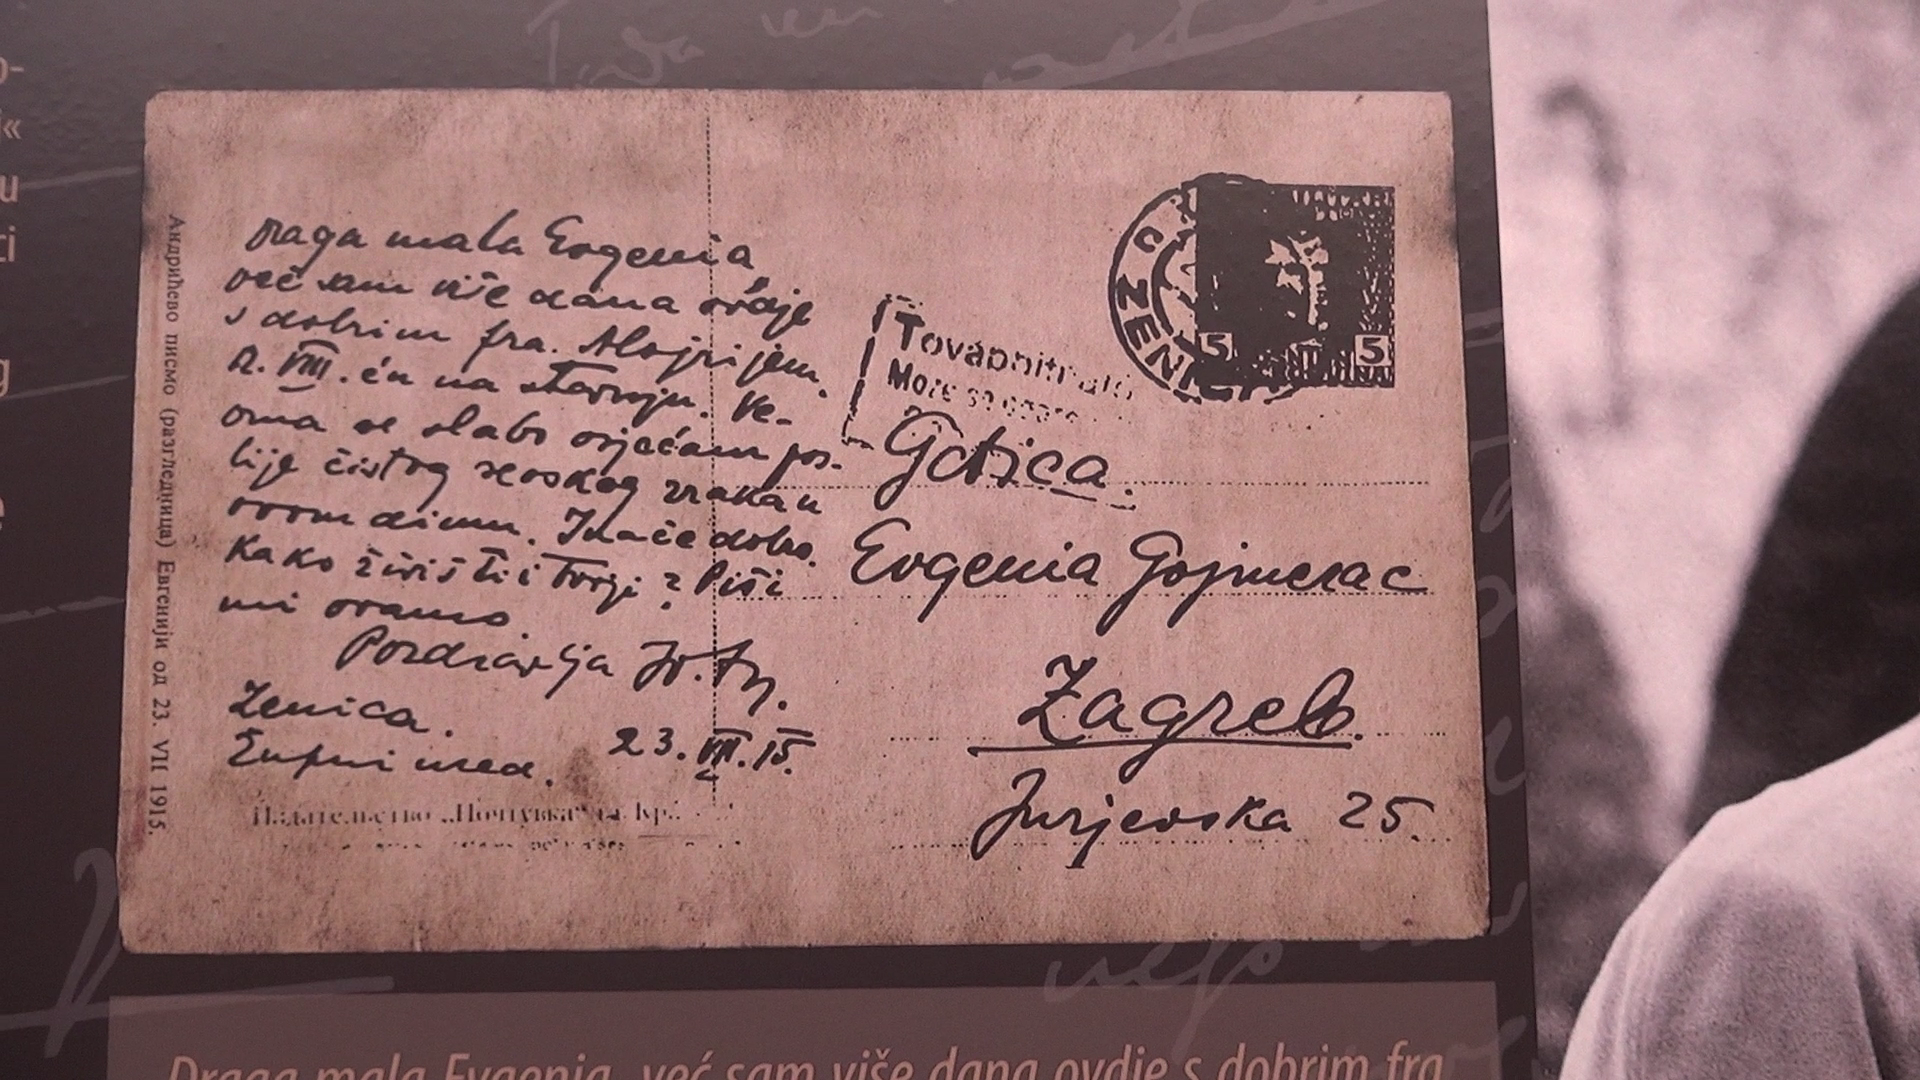 Андрићево писмо (разгледница) Евгенији од 23. VII 1915.
Draga mala Evgenia,
već sam više dana ovdje
s dobrim fra. Alojzijem.
2. VIII. ću na stavnju. Ve-
oma se slabo osjećam pos-
lije čistog seoskog zraka u
ovom dimu. Inače dobro.
Kako živiš ti i tvoji? Piši
mi ovamo.
Pozdravlja Iv.
Zenica.
Župni ured.
23. VII. 15.
Издательство „Почтувка"
ZENI
5 5
More
Gđica.
Evgenia Gojmerac
Zagreb.
Jurjevska 25.
Draga mala Evgenia, već sam više dana ovdje s dobrim fra